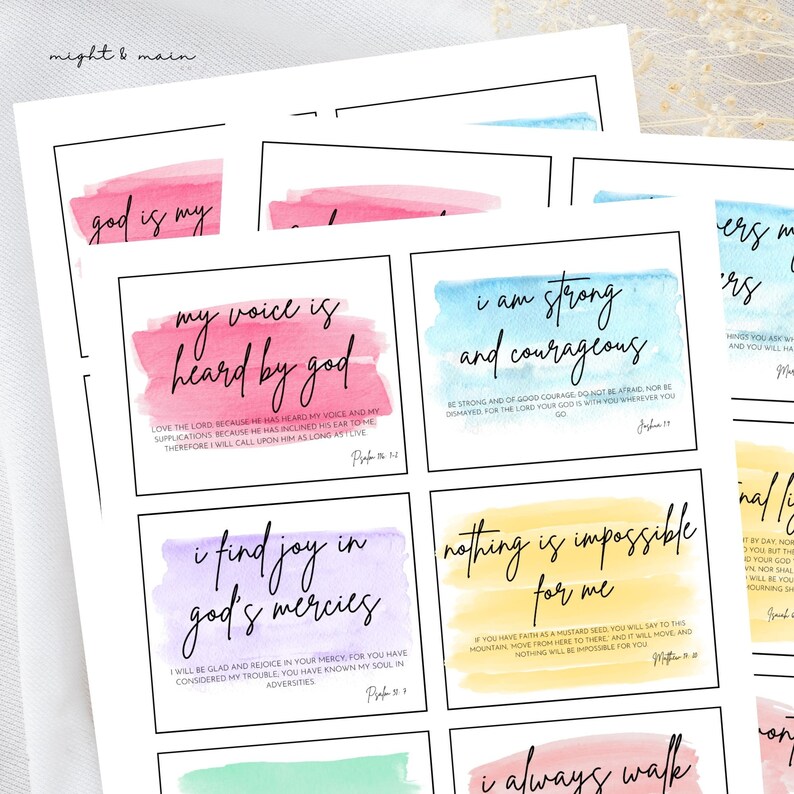 might & main
god is my
my voice is
heard by god
LOVE THE LORD, BECAUSE HE HAS HEARD MY VOICE AND MY
SUPPLICATIONS. BECAUSE HE HAS INCLINED HIS EAR TO ME,
THEREFORE I WILL CALL UPON HIM AS LONG AS I LIVE.
Psalm 116: 1-2
i am strong
and courageous
BE STRONG AND OF GOOD COURAGE; DO NOT BE AFRAID, NOR BE
DISMAYED, FOR THE LORD YOUR GOD IS WITH YOU WHEREVER YOU
GO.
Joshua 1:9
i find joy in
god's mercies
I WILL BE GLAD AND REJOICE IN YOUR MERCY, FOR YOU HAVE
CONSIDERED MY TROUBLE; YOU HAVE KNOWN MY SOUL IN
ADVERSITIES.
Psalm 31: 7
nothing is impossible
for me
IF YOU HAVE FAITH AS A MUSTARD SEED, YOU WILL SAY TO THIS
MOUNTAIN, 'MOVE FROM HERE TO THERE,' AND IT WILL MOVE; AND
NOTHING WILL BE IMPOSSIBLE FOR YOU.
Matthew 17: 20
i always walk
THINGS YOU ASK
AND YOU WILL
BY DAY, NOR
YOU, BUT THE
YOUR GOD
NOR SHALL
WILL BE YOU
MOURNING
Isaiah